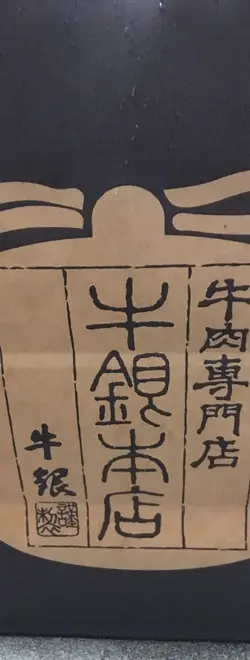 牛肉専門店
牛銀本店
牛銀
謹製